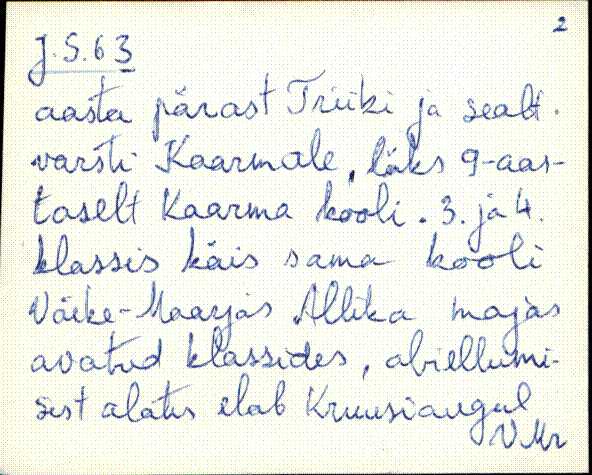 2
J.S. 63
aasta pärast Triiki ja sealt
varsti Kaarmale, läks 9-aas-
taselt Kaarma kooli. 3. ja 4.
klassis käis sama kooli
Väike-Maarjas Allika majas
avatud klassides, abiellumi-
sest alates elab Kruusiaugul
VMr